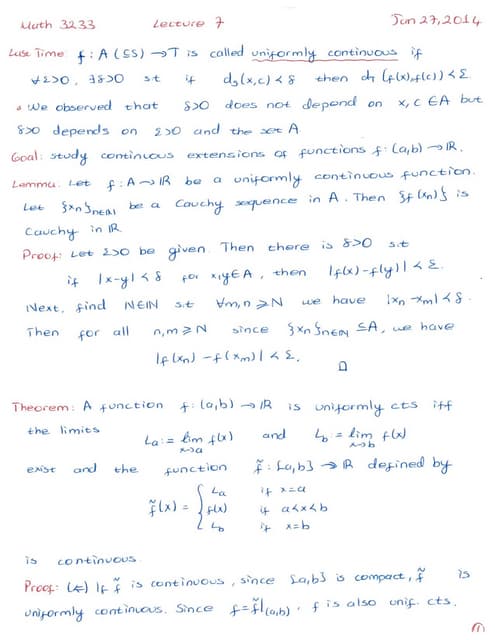 Math 3233 Lecture 7 Jan 27, 2014
Last Time: f: A (⊆S) → T is called uniformly continuous if
∀ε>0, ∃δ>0 s.t if d_S(x,c)<δ then d_T(f(x),f(c))<ε.
* We observed that δ>0 does not depend on x,c ∈ A but
δ>0 depends on ε>0 and the set A
Goal: study continuous extensions of functions f: (a,b) → ℝ.
Lemma: Let f: A → ℝ be a uniformly continuous function.
Let {xn}n∈ℕ be a Cauchy sequence in A. Then {f(xn)} is
Cauchy in ℝ
Proof: Let ε>0 be given. Then there is δ>0 s.t
if |x-y|<δ for x,y∈A, then |f(x)-f(y)|<ε.
Next, find N∈ℕ s.t ∀m,n ≥ N we have |xn-xm|<δ.
Then for all n,m ≥ N since {xn}n∈ℕ ⊆ A, we have
|f(xn) - f(xm)| < ε.
□
Theorem: A function f: (a,b) → ℝ is uniformly cts iff
the limits La := lim x→a f(x) and Lb := lim x→b f(x)
exist and the function f̃: [a,b] → ℝ defined by
f̃(x) = { La if x=a
f(x) if a<x<b
Lb if x=b
is continuous.
Proof: (⇐) If f̃ is continuous, since [a,b] is compact, f̃ is
uniformly continuous. Since f = f̃|(a,b), f is also unif. cts.
1